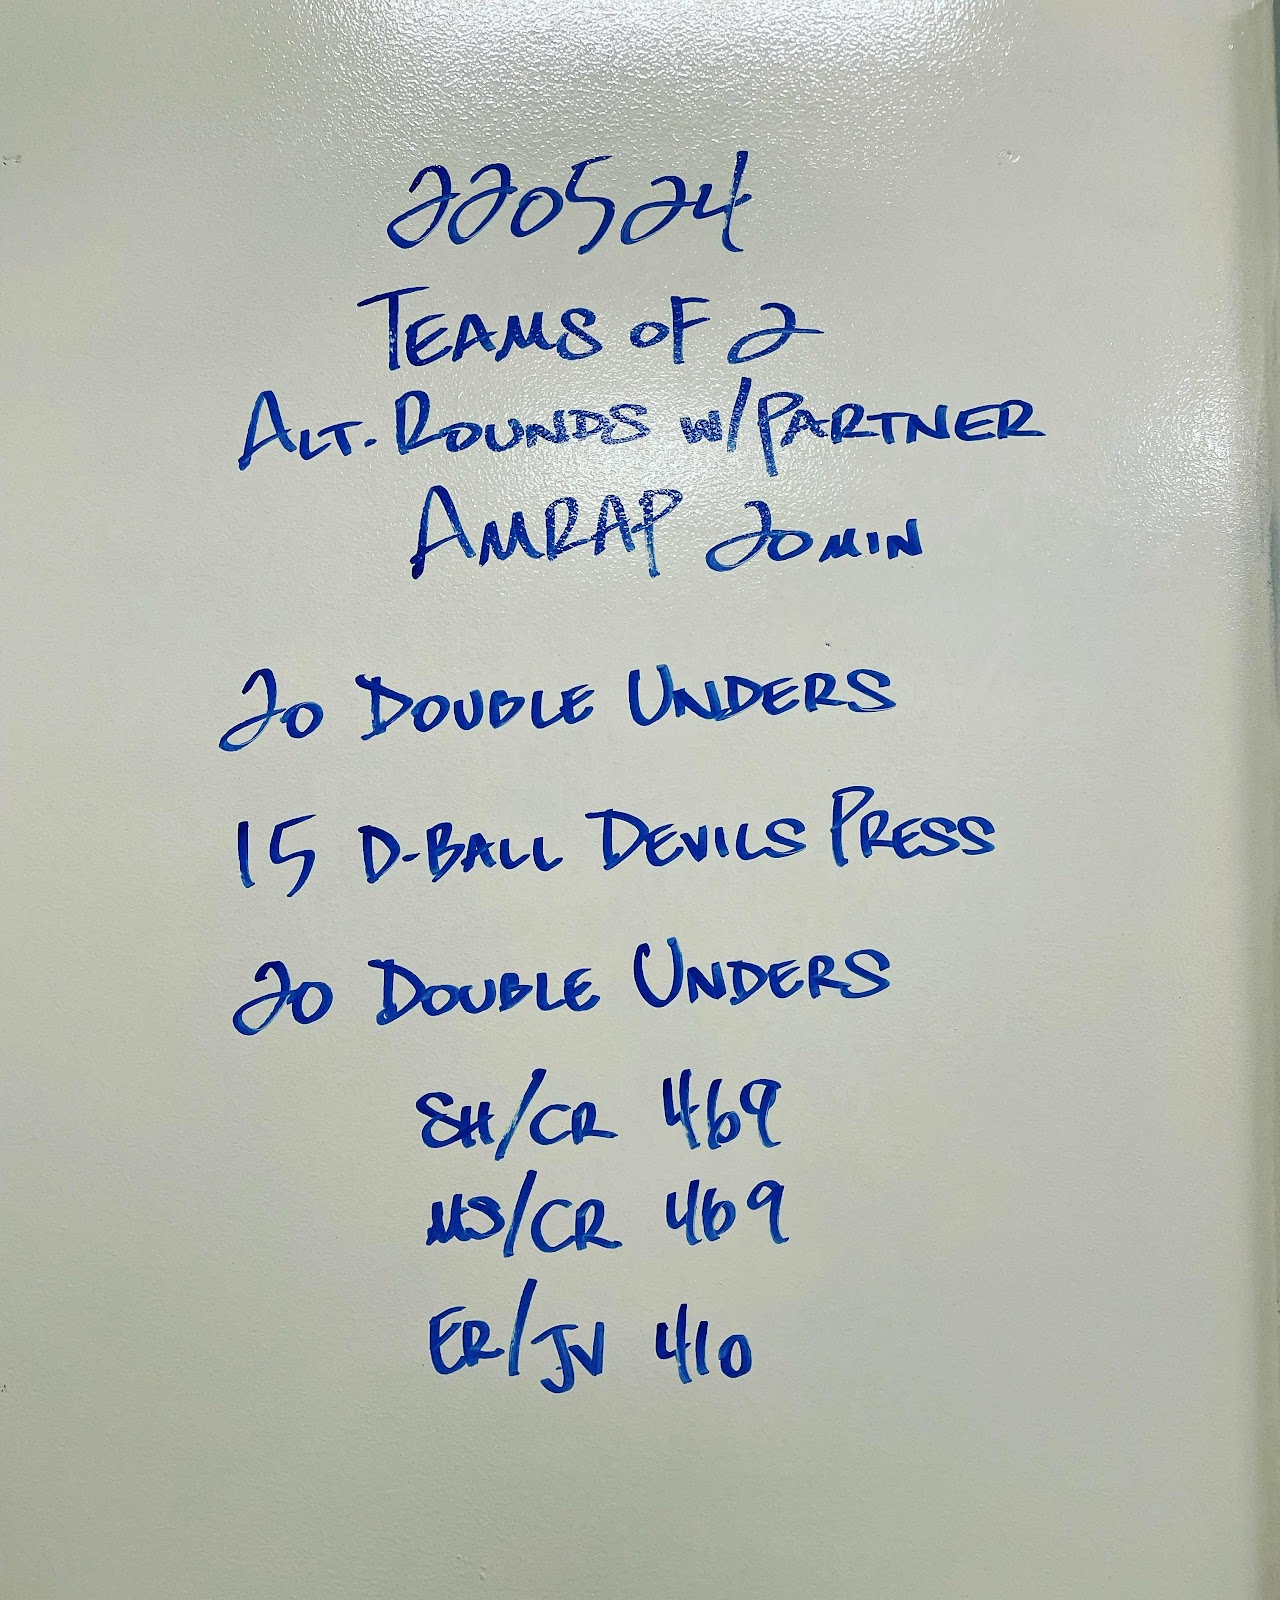 220524
TEAMS OF 2
ALT. ROUNDS W/PARTNER
AMRAP 20 MIN
20 DOUBLE UNDERS
15 D-BALL DEVILS PRESS
20 DOUBLE UNDERS
SH/CR 469
MS/CR 469
ER/JV 410